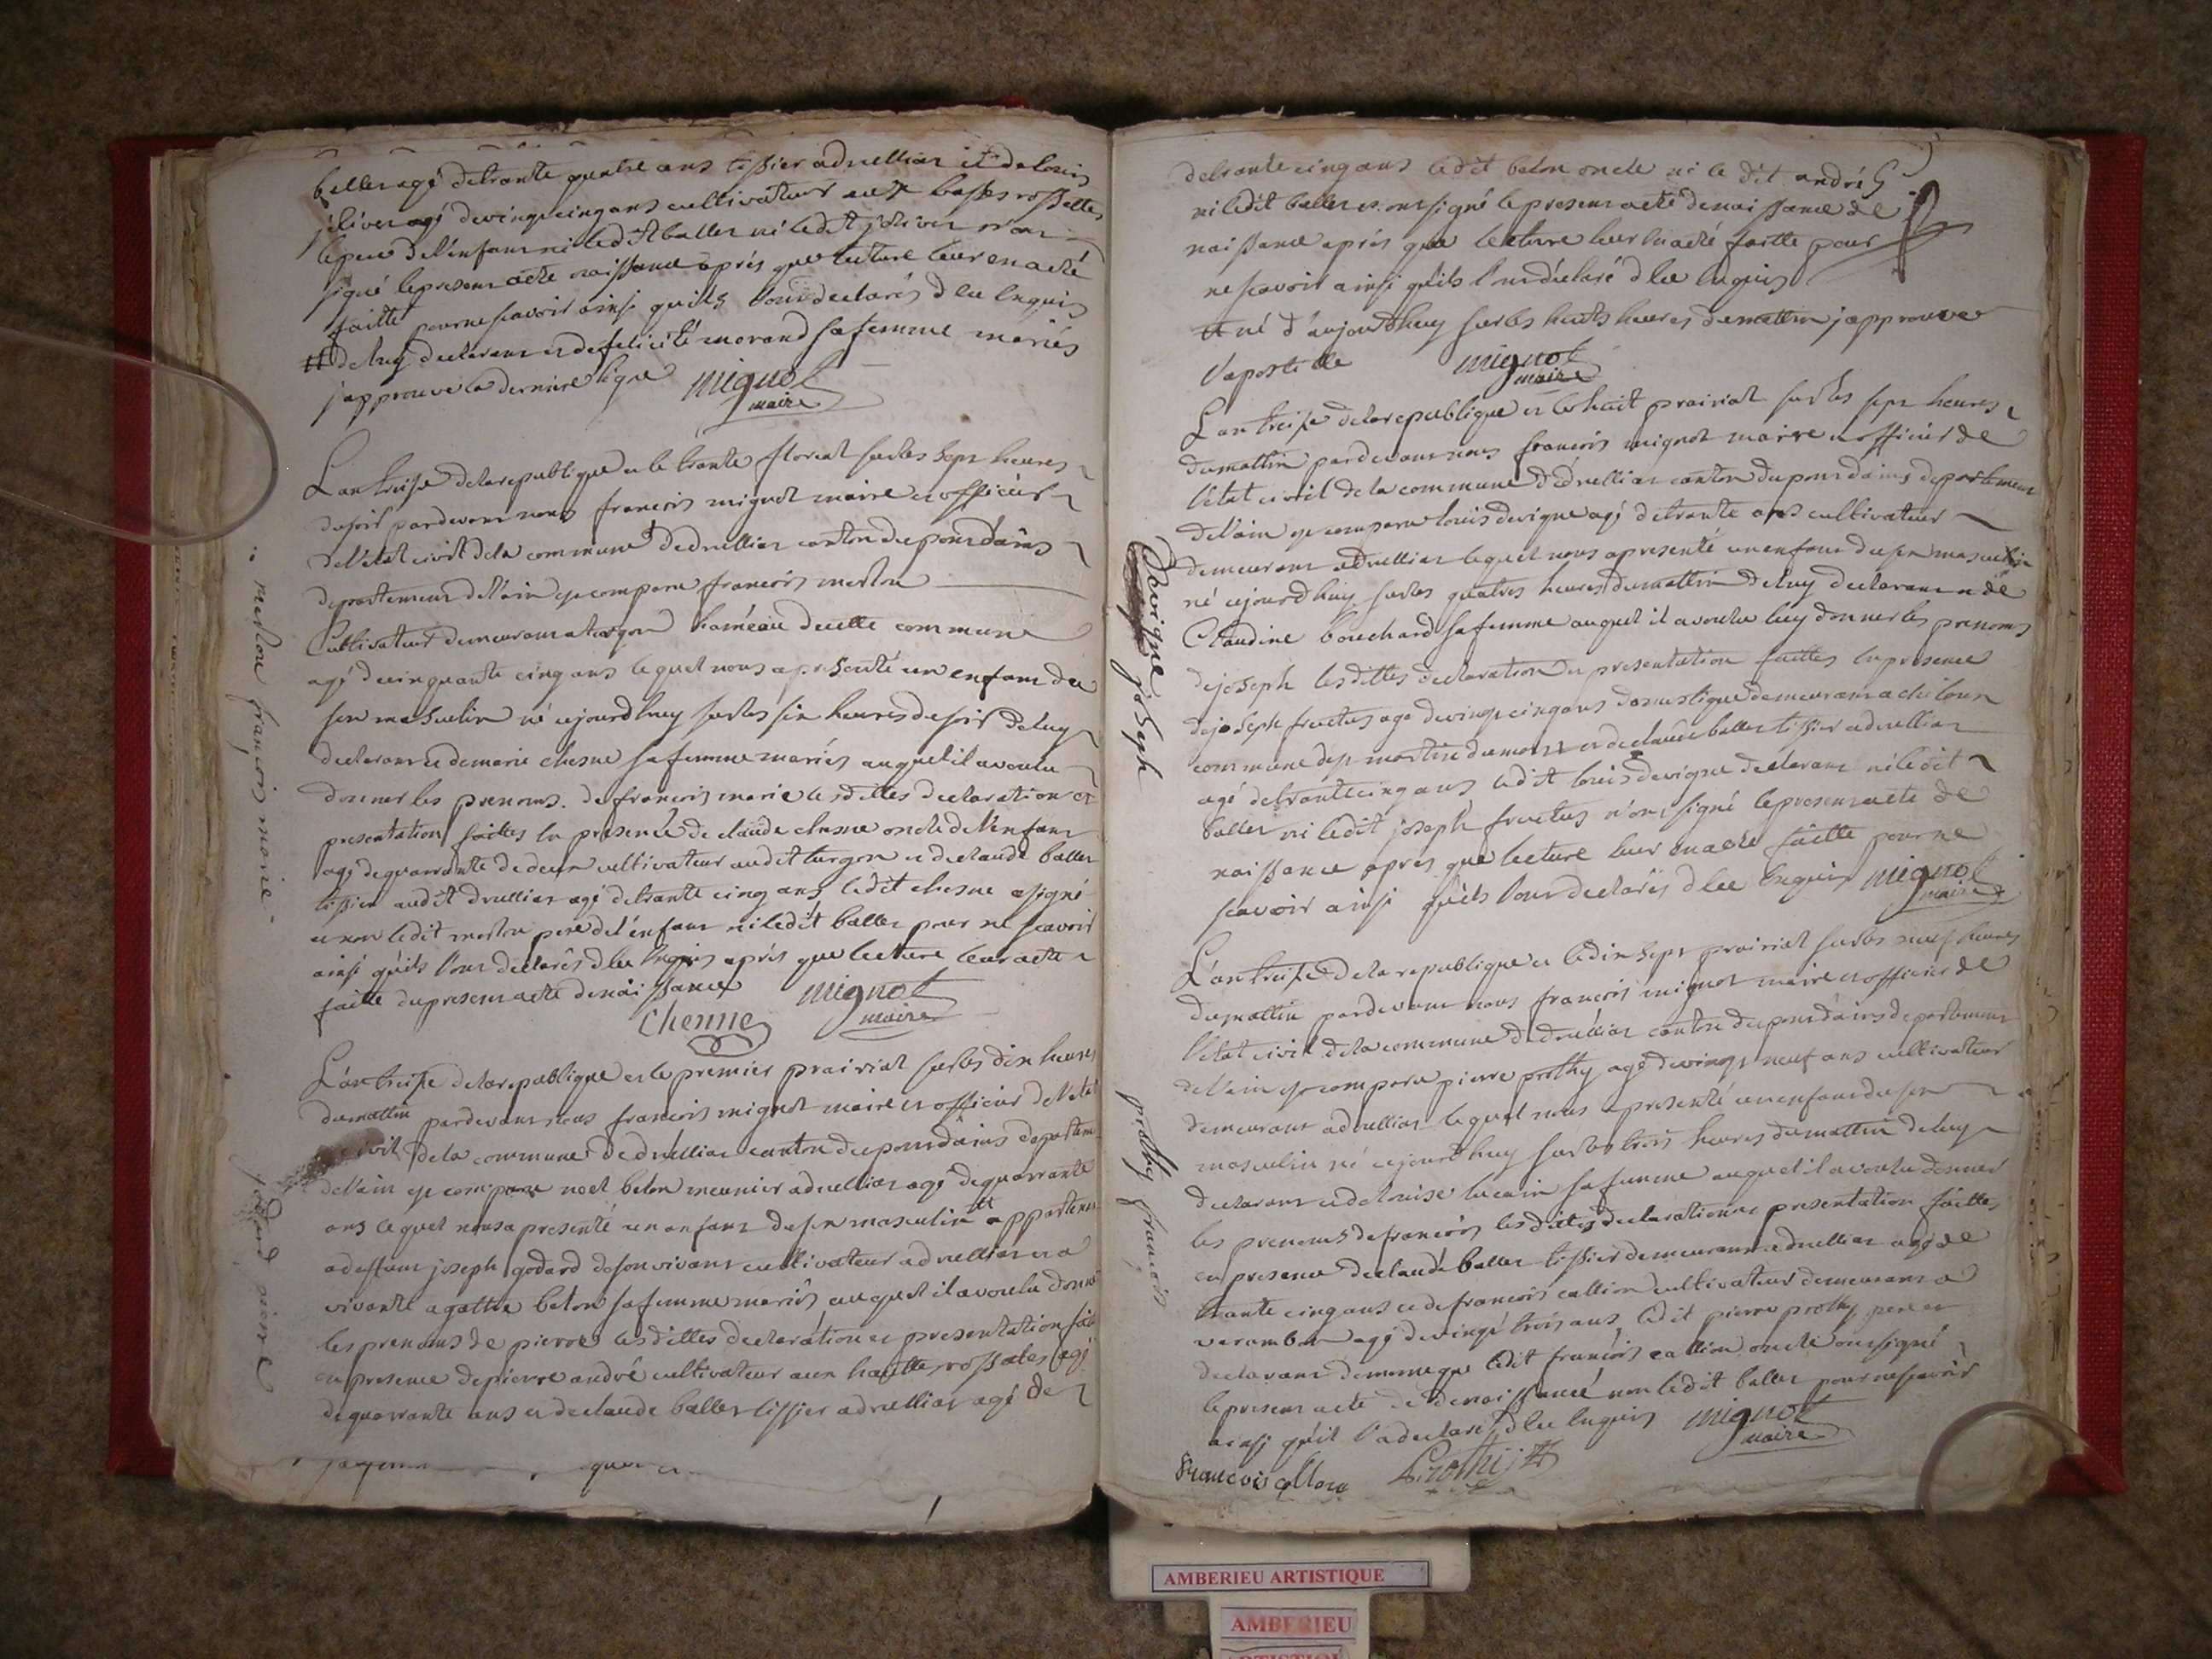 baller agé de trante quatre ans tissier a druilliat et de louis
joliver agé de vingt cinq ans cultivateur aux basses rossettes
le pere de l'enfant ni ledit baller ni ledit joliver n'ont
signé le present acte naissance aprés que lecture leur en a eté
faitte pour ne scavoir ainsi quils l'ont declarés d lee Enquis
# de luy declarant et de felicité morand sa femme mariés
japprouve la derniere ligne mignot
maire
L'an treise de la republique et le trante floreal sur les sept heures
du soir par devant nous francois mignot maire et officier
de l'état civil de la commune de druilliat canton du pont dains
departement de l'ain est comparu francois merlou
Cultivateur demeurant a turgon haméau de cette commune
agé de cinquante cinq ans lequel nous a presenté un enfant du
sex masculin né cejourdhuy sur les six heures du soir de luy
declarant et de marie chesne sa femme mariés auquel il a voulu
donner les prenoms de francois marie lesdittes declaration et
presentation faittes En presence de claude chesne oncle de l'enfant
agé de quarrante de deux cultivateur audit turgon et de claude baller
tissier audit druilliat agé de trante cinq ans ledit chesne a signé
et non ledit merlou pere de l'énfant ni ledit baller pour ne scavoir
ainsi quils l'ont declarés d lee Enquis aprés que lecture leur a eté
faitte du present acte de naissance mignot
Chenne maire
merlou francois marie
L'an treise de la republique et le premier prairial sur les dix heures
du mattin par devant nous francois mignot maire et officier de l'etat
civil de la commune de druilliat canton du pont dains departem
de l'ain est comparu noel beton meunier a druilliat agé de quarrante
ans lequel nous a presenté un enfant du sex masculin # appartenant
a deffunt joseph godard de son vivant cultivateur a druilliat et a
vivante agathe beton sa femme mariés auquel il a voulu donner
les prenoms de pierre lesdittes declaration et presentation fait
en presence de pierre andré cultivateur aux hautte rossates agé
de quarrante ans et de claude baller tissier a druilliat agé de
godard pierre
de trante cinq ans ledit beton oncle ni le dit andré
ni ledit baller n'ont signé le present acte de naissance de
naissance aprés que lecture leur En a eté faitte pour
ne scavoir ainsi quils l'ont déclaré d lee Enquis
# né d'aujourdhuy sur les huits heures du mattin japprouve
l'apostille mignot
maire
L'an treise de la republique et le huit prairial sur les sept heures
du mattin par devant nous francois mignot maire et officier de
l'état civil de la commune de druilliat canton du pont dains departement
de l'ain est comparu louis devigne agé de trante ans cultivateur
demeurant a druilliat lequel nous a presenté un enfant du sex masculin
né cejourdhuy sur les quatres heures du mattin de luy declarant et de
Claudine bouchard sa femme auquel il a voulu luy donner les prenoms
de joseph lesdittes declaration et presentation faittes En presence
de joseph fructus age de vingt cinq ans domestique demeurant a
commune de st martin du mont et de claude baller tissier a druilliat
agé de trante cinq ans ledit louis devigne declarant ni ledit
baller ni ledit joseph fructus n'ont signé le present acte de
naissance aprés que lecture leur En a eté faitte pour ne
scavoir ainsi quils l'ont declarés d lee Enquis mignot
maire
Devigne joseph
L'an treise de la republique et le dix sept prairial sur les neuf heures
du mattin par devant nous francois mignot maire et officier de
l'état civil de la commune de druilliat canton du pont dains departement
de l'ain est comparu pierre prothy agé de vingt neuf ans cultivateur
demeurant a druilliat lequel nous a presenté un enfant du sex
masculin né cejourdhuy sur les trois heures du mattin de luy
declarant et de louise lucain sa femme auquel il a voulu donner
les prenoms de francois lesdittes declaration et presentation faittes
en presence de claude baller tissier demeurant a druilliat agé de
trante cinq ans et de francois callion cultivateur demeurant a
varambon agé de vingt trois ans ledit pierre prothy pere et
declarant de meme que ledit francois callion oncle ont signé
le present acte de de naissance non ledit baller pour ne scavoir
ainsi quil l'a declaré d lee Enquis mignot
maire
francois Prothy
prothy francois
AMBERIEU ARTISTIQUE
AMBERIEU
ARTISTIQUE